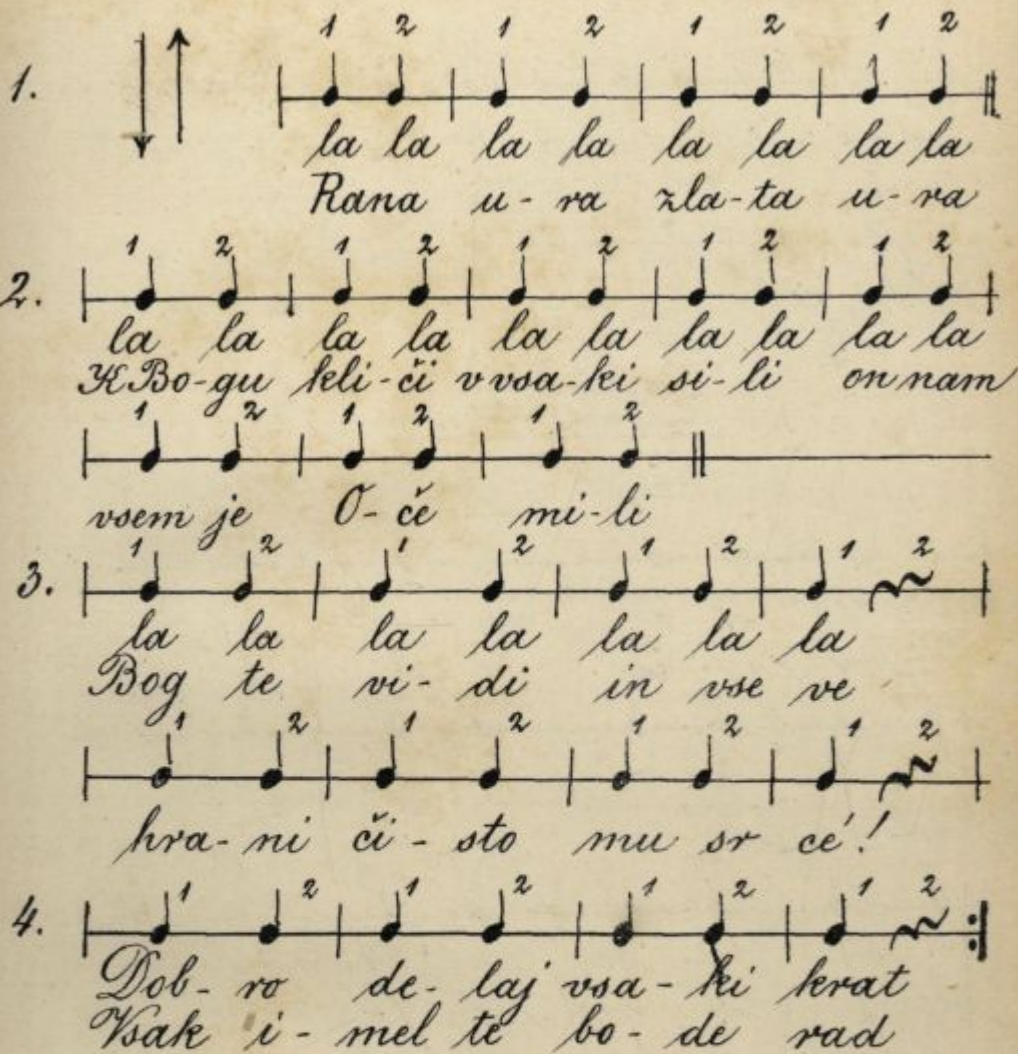 1 2 1 2 1 2 1 2
1.
la la la la la la la la
Rana u-ra zla-ta u-ra
1 2 1 2 1 2 1 2 1 2
2.
la la la la la la la la la la
K Bo-gu kli-či v vsa-ki si-li on nam
1 2 1 2 1 2
vsem je O-če mi-li
1 2 1 2 1 2 1 2
3.
la la la la la la la
Bog te vi-di in vse ve
1 2 1 2 1 2 1 2
hra-ni či-sto mu sr cé!
1 2 1 2 1 2 1 2
4.
Dob-ro de-laj vsa-ki krat
Vsak i-mel te bo-de rad